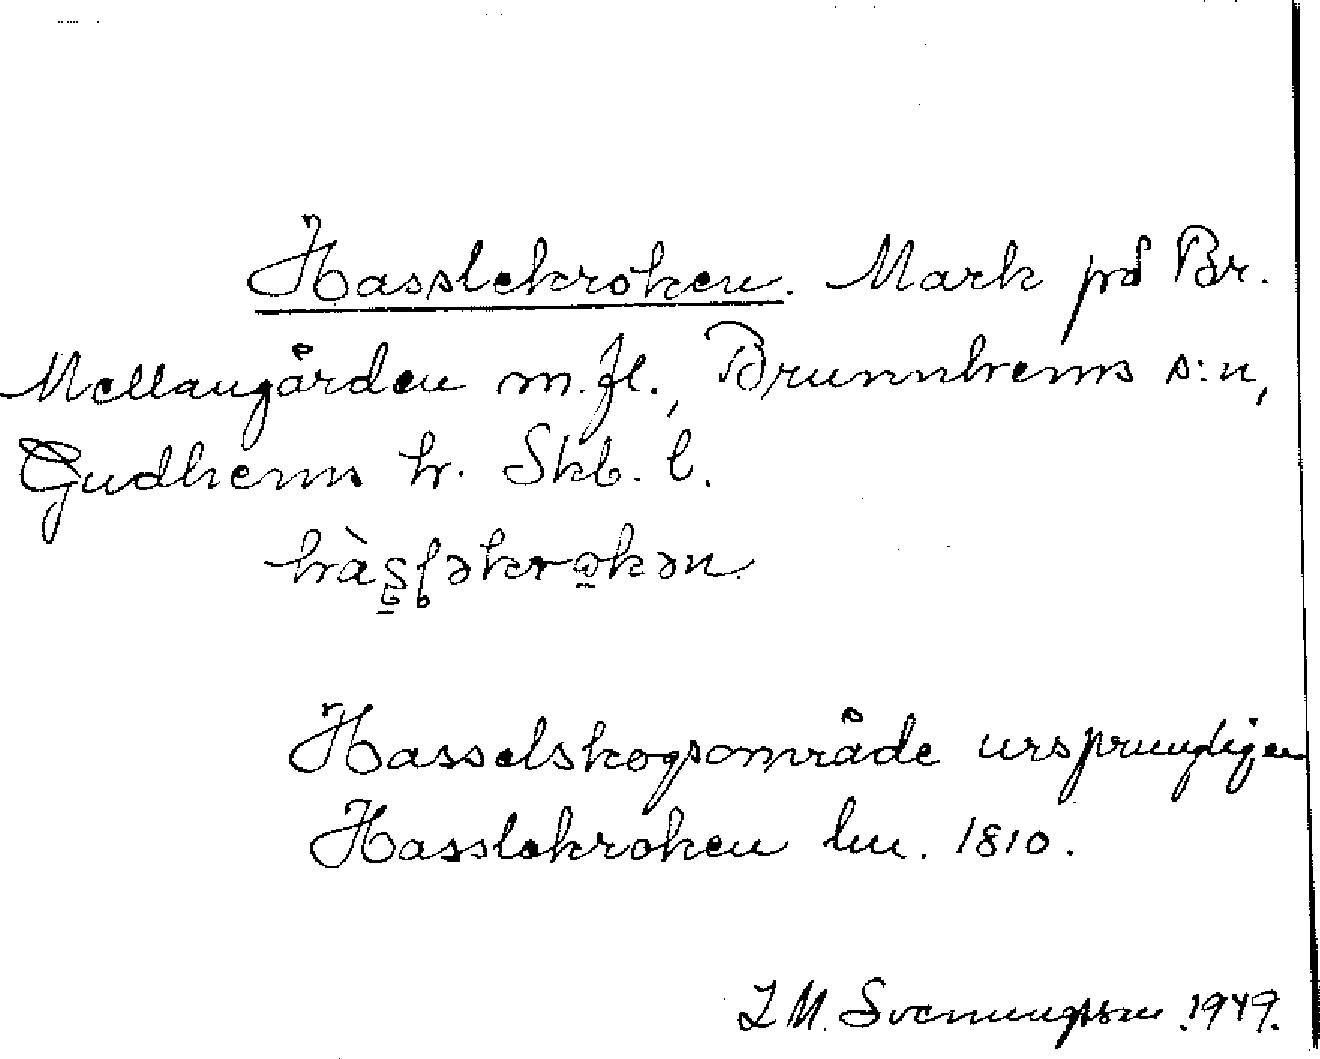 Hasslekroken. Mark på Br.
Mellangården m.fl., Brunnhems s:n,
Gudhems hr. Skb. l.
Hasselskogsområde ursprungligen
Hasslekroken lm. 1810.
Svenungsson 1949.